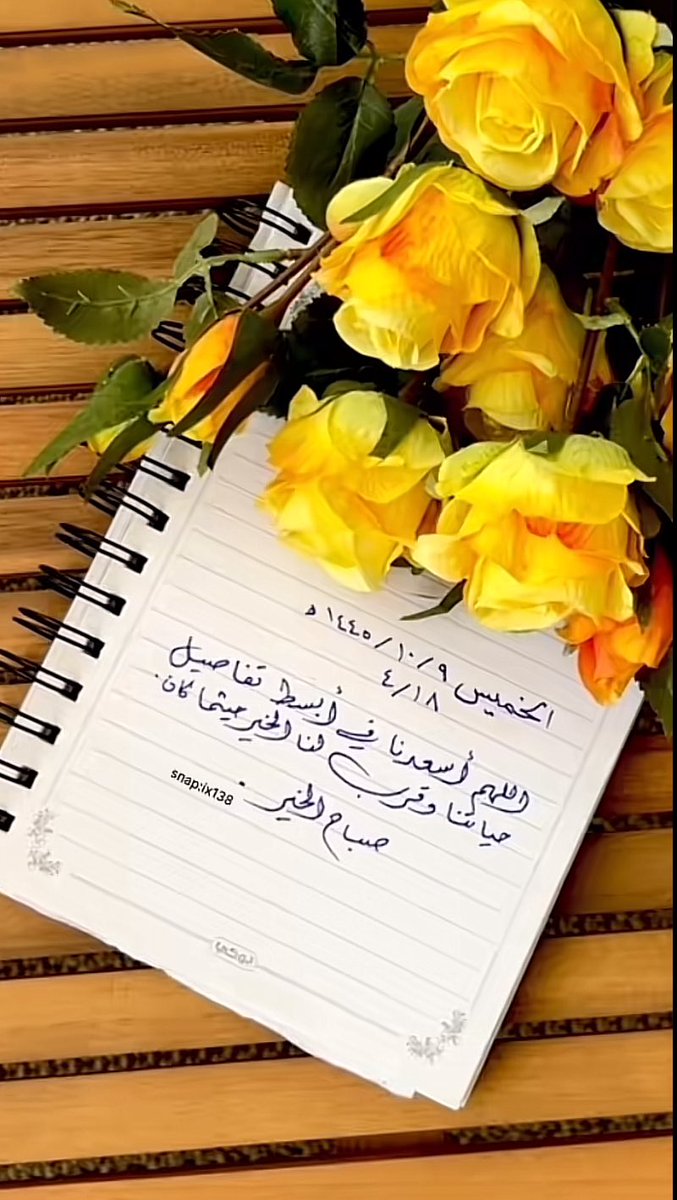 الخميس ١٤٤٥/١٠/٩ ه
٤/١٨
اللهم أسعدنا في أبسط تفاصيل
حياتنا وقرب لنا الخير حيثما كان.
صباح الخير.
snap:ix138